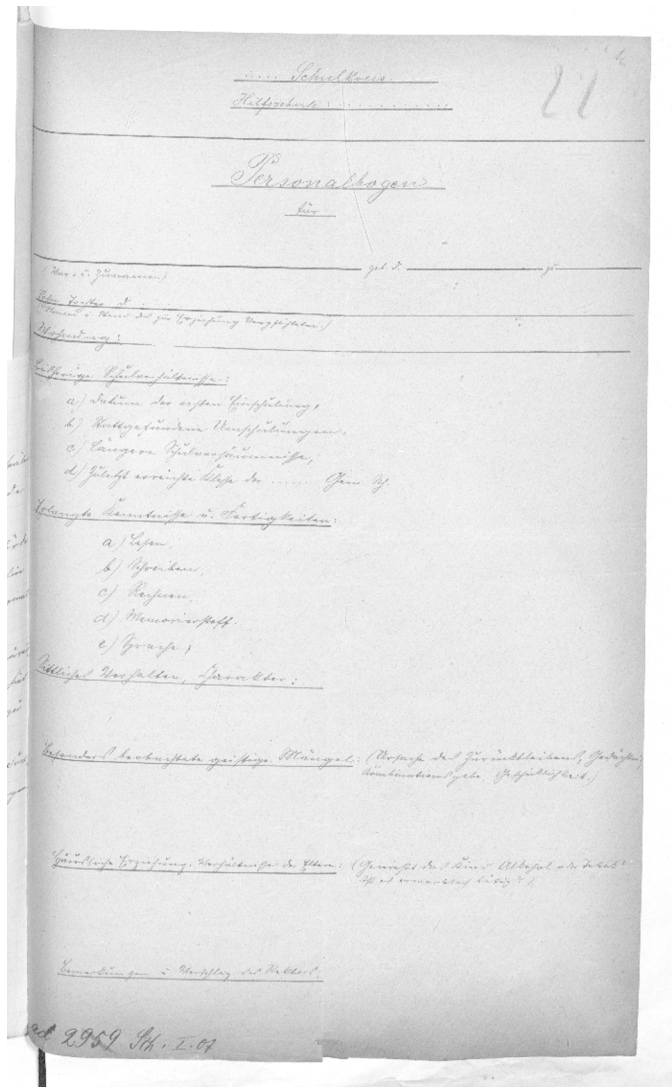 ..... Schulkreis.
Hilfsschule: ...........
22
Personalbogen
für
geb. d. zu
(Vor- u. Zunamen)
Sohn Tochter d. ....
(Namen u. Stand des zur Erziehung Verpflichteten.)
Wohnung:
Bisherige Schulverhältnisse:
a) Datum der ersten Einschulung,
b) Stattgefundene Umschulungen,
c) Längere Schulversäumnisse,
d) Zuletzt erreichte Klasse der ...... Gem. Sch.
Erlangte Kenntnisse u. Fertigkeiten:
a) Lesen,
b) Schreiben,
c) Rechnen,
d) Memorierstoff.
e) Sprache,
Sittliches Verhalten, Charakter:
Besonders beobachtete geistige Mängel: (Ursache des Zurückbleibens, Gedächtnis,
Kombinationsgabe. Geschicklichkeit.)
Häusliche Erziehung. Verhältnisse der Eltern: (Genießt das Kind Alkohol oder Tabak?
Ist es erwerblich tätig?)
Bemerkungen u. Vorschlag des Rektors.
ad 2959 Sch. I. 07